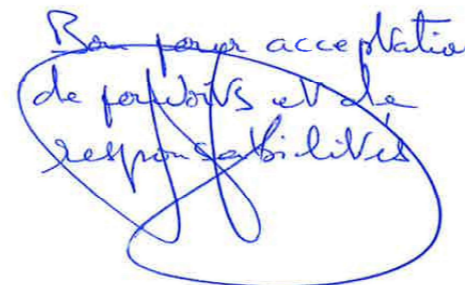 Bon pour acceptatio
de pouvoirs et de
responsabilités